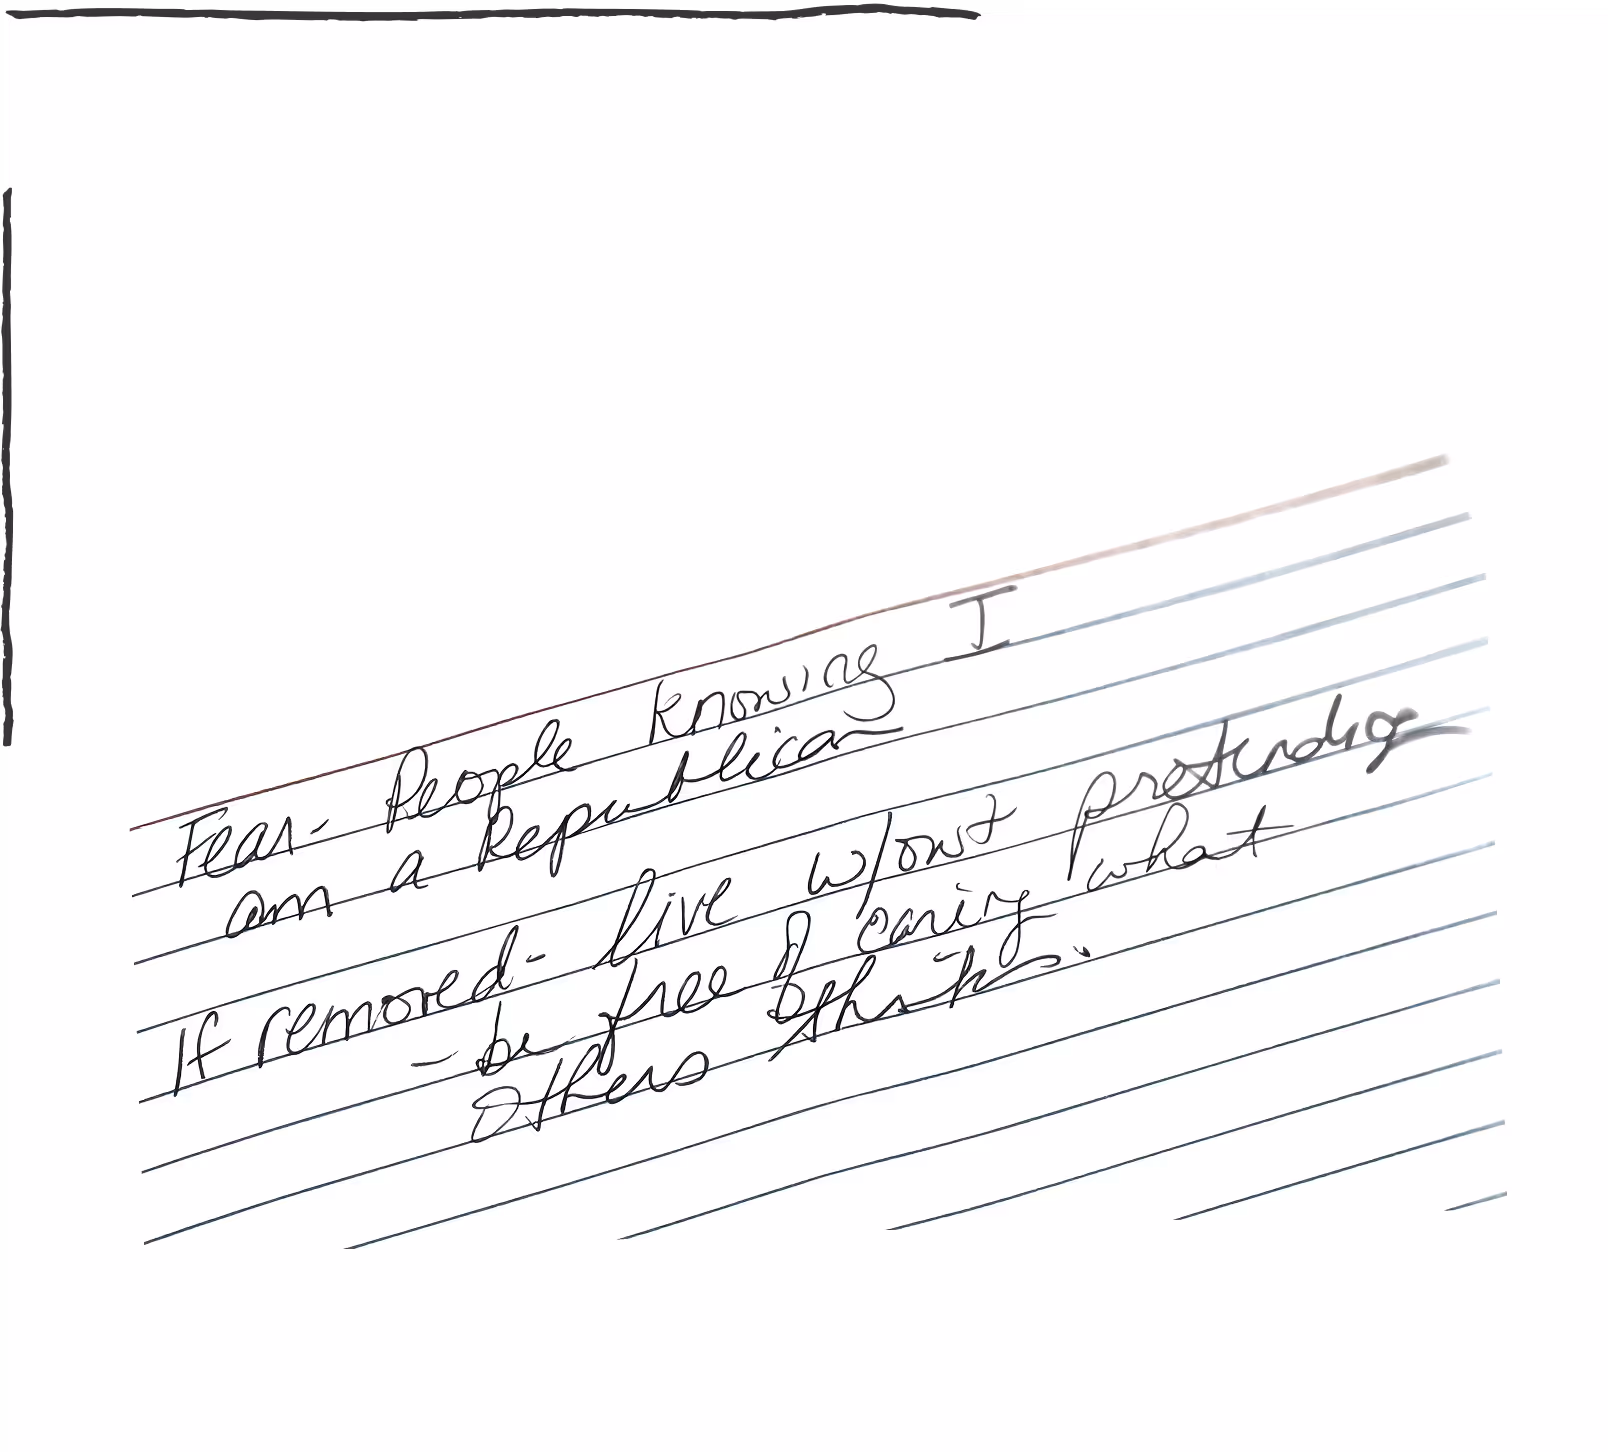 Fear- People knowing I
am a Republican
If removed- live w/out pretending
- be free of caring what
others think.